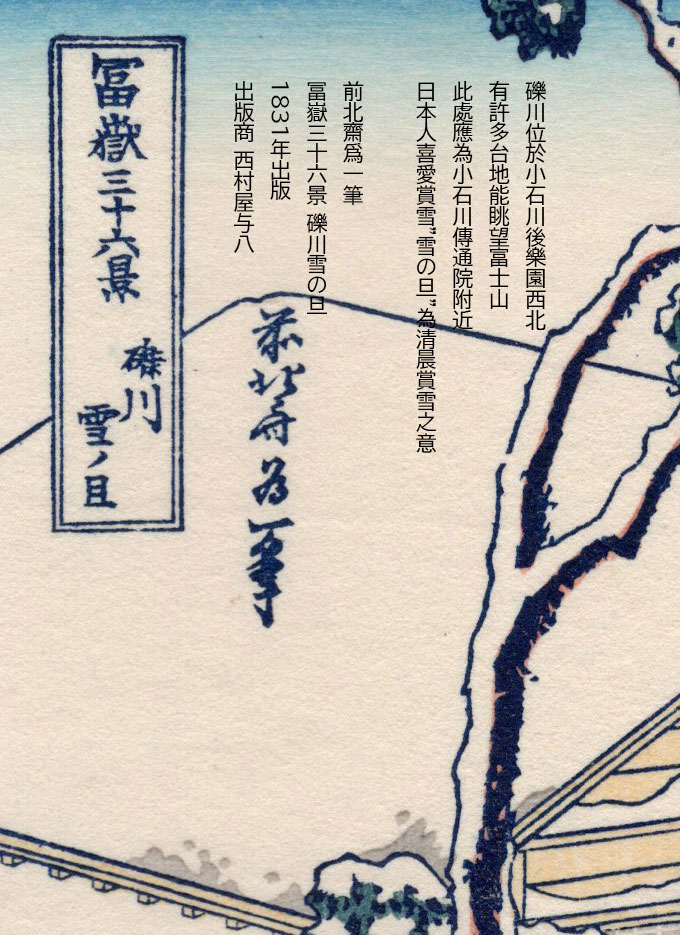 礫川位於小石川後樂園西北
有許多台地能眺望富士山
此處應為小石川傳通院附近
日本人喜愛賞雪"雪の旦"為清晨賞雪之意
前北齋爲一筆
冨嶽三十六景 礫川雪の旦
1831年出版
出版商 西村屋与八
前北斎為一筆
冨嶽三十六景
礫川
雪ノ旦